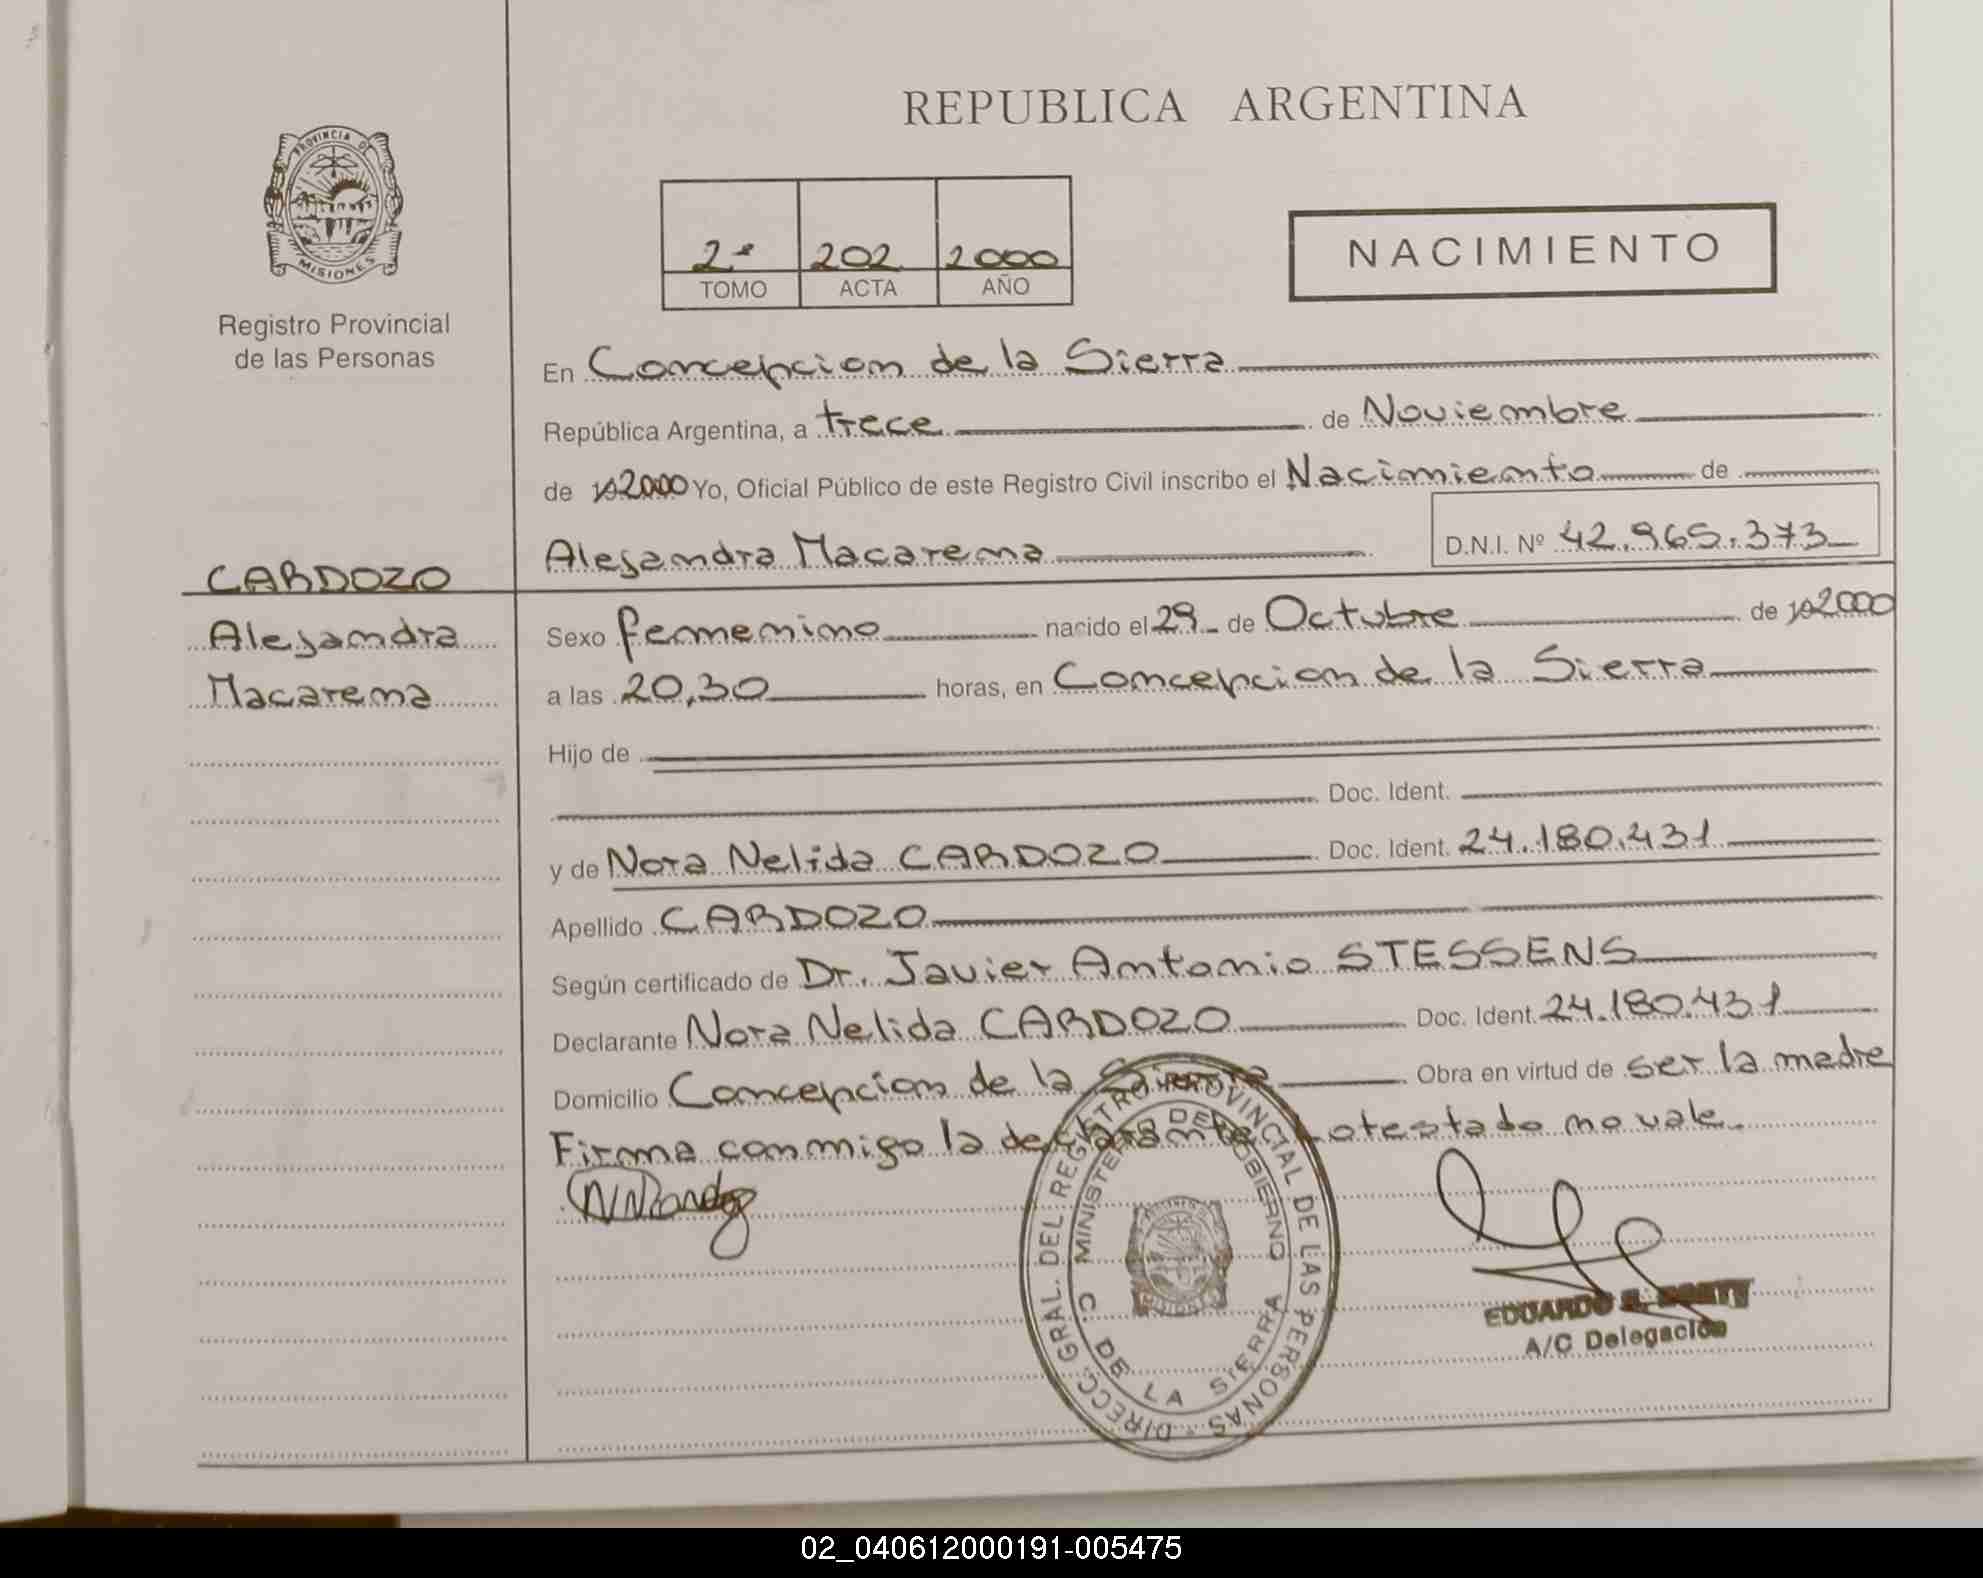 REPUBLICA ARGENTINA
PROVINCIA DE
MISIONES
Registro Provincial
de las Personas
2º 202 2000
TOMO ACTA AÑO
NACIMIENTO
En Concepcion de la Sierra
República Argentina, a trece de Noviembre
de 192000 Yo, Oficial Público de este Registro Civil inscribo el Nacimiento de
Alejandra Macarena D.N.I. Nº 42.965.373
CARDOZO
Alejandra
Macarena
Sexo femenino nacido el 29 de Octubre de 192000
a las 20,30 horas, en Concepcion de la Sierra
Hijo de
Doc. Ident.
y de Nora Nelida CARDOZO Doc. Ident. 24.180.431
Apellido CARDOZO
Según certificado de Dr. Javier Antonio STESSENS
Declarante Nora Nelida CARDOZO Doc. Ident. 24.180.431
Domicilio Concepcion de la Sierra Obra en virtud de ser la madre
Firma conmigo la declarante Lotestado no vale.
DIRECC. GRAL. DEL REGISTRO PROVINCIAL DE LAS PERSONAS
MINISTERIO DE GOBIERNO
C. DE LA SIERRA
EDUARDO
A/C Delegación
02_040612000191-005475